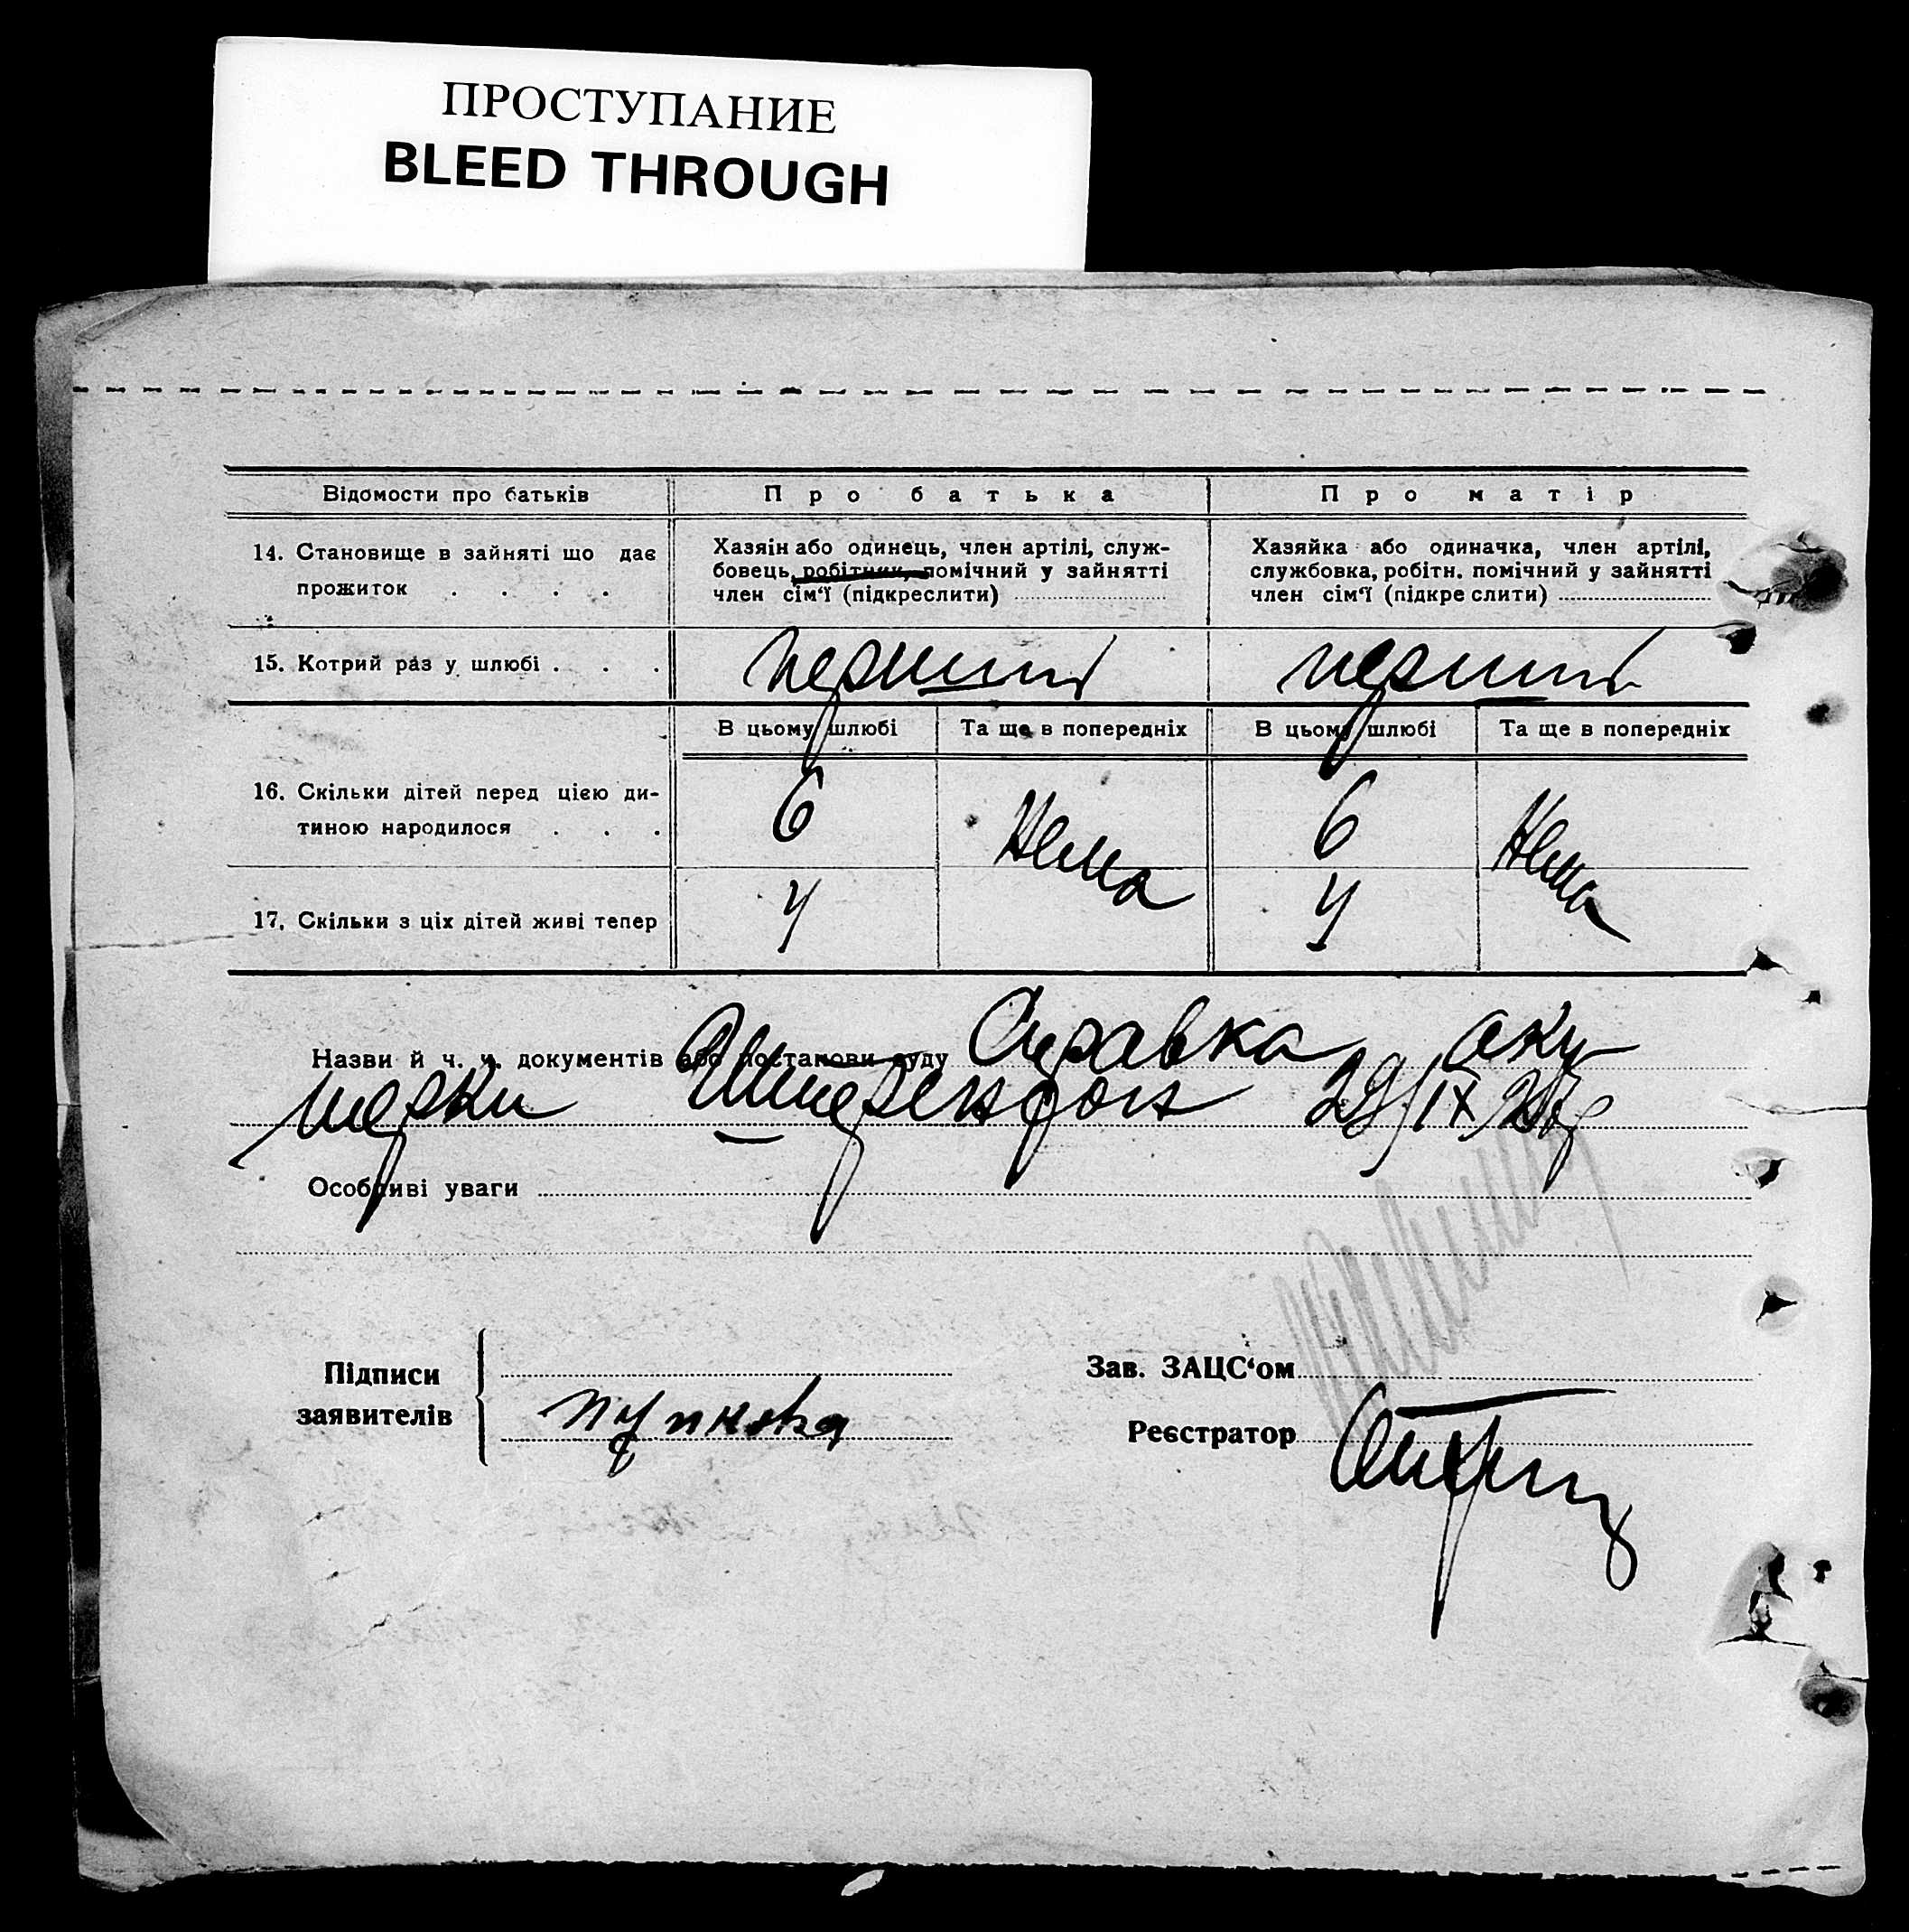 ПРОСТУПАНИЕ
BLEED THROUGH
Відомости про батьків
Про батька
Про матір
14. Становище в зайняті що дає
прожиток . . . .
Хазяїн або одинець, член артілі, служ-
бовець, робітник, помічний у зайнятті
член сім'ї (підкреслити)
Хазяйка або одиначка, член артілі,
службовка, робітн. помічний у зайнятті
член сім'ї (підкреслити)
15. Котрий раз у шлюбі . . .
перший
перший
В цьому шлюбі
Та ще в попередніх
В цьому шлюбі
Та ще в попередніх
16. Скільки дітей перед цією ди-
тиною народилося . . .
6
Нема
6
Нема
17. Скільки з ціх дітей живі тепер
4
4
Назви й ч. ч. документів або постанови суду Справка аку
шерки 29/IX
Особливі уваги
Підписи
заявителів
Зав. ЗАЦС'ом
Реєстратор